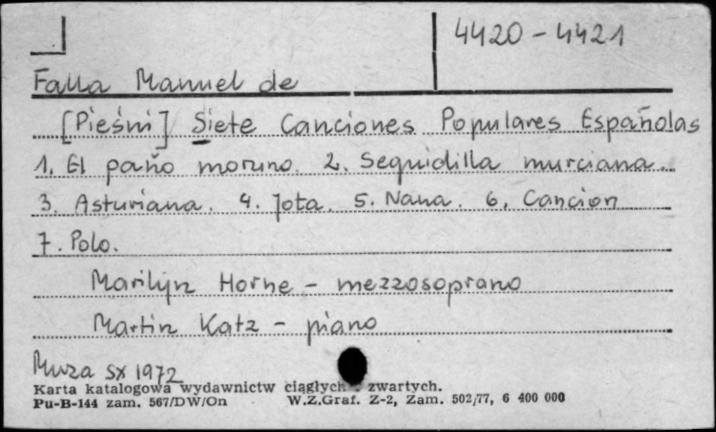 4420-4421
Falla Manuel de
[Pieśni] Siete Canciones Populares Españolas
1. El paño moruno. 2. Seguidilla murciana.
3. Asturiana. 4. Jota. 5. Nana. 6. Cancion
7. Polo.
Marilyn Horne - mezzosoprano
Martin Katz - piano
Muza SX 1972
Karta katalogowa wydawnictw ciągłych zwartych.
Pu-B-144 zam. 567/DW/On W.Z.Graf. Z-2, Zam. 502/77, 6 400 000